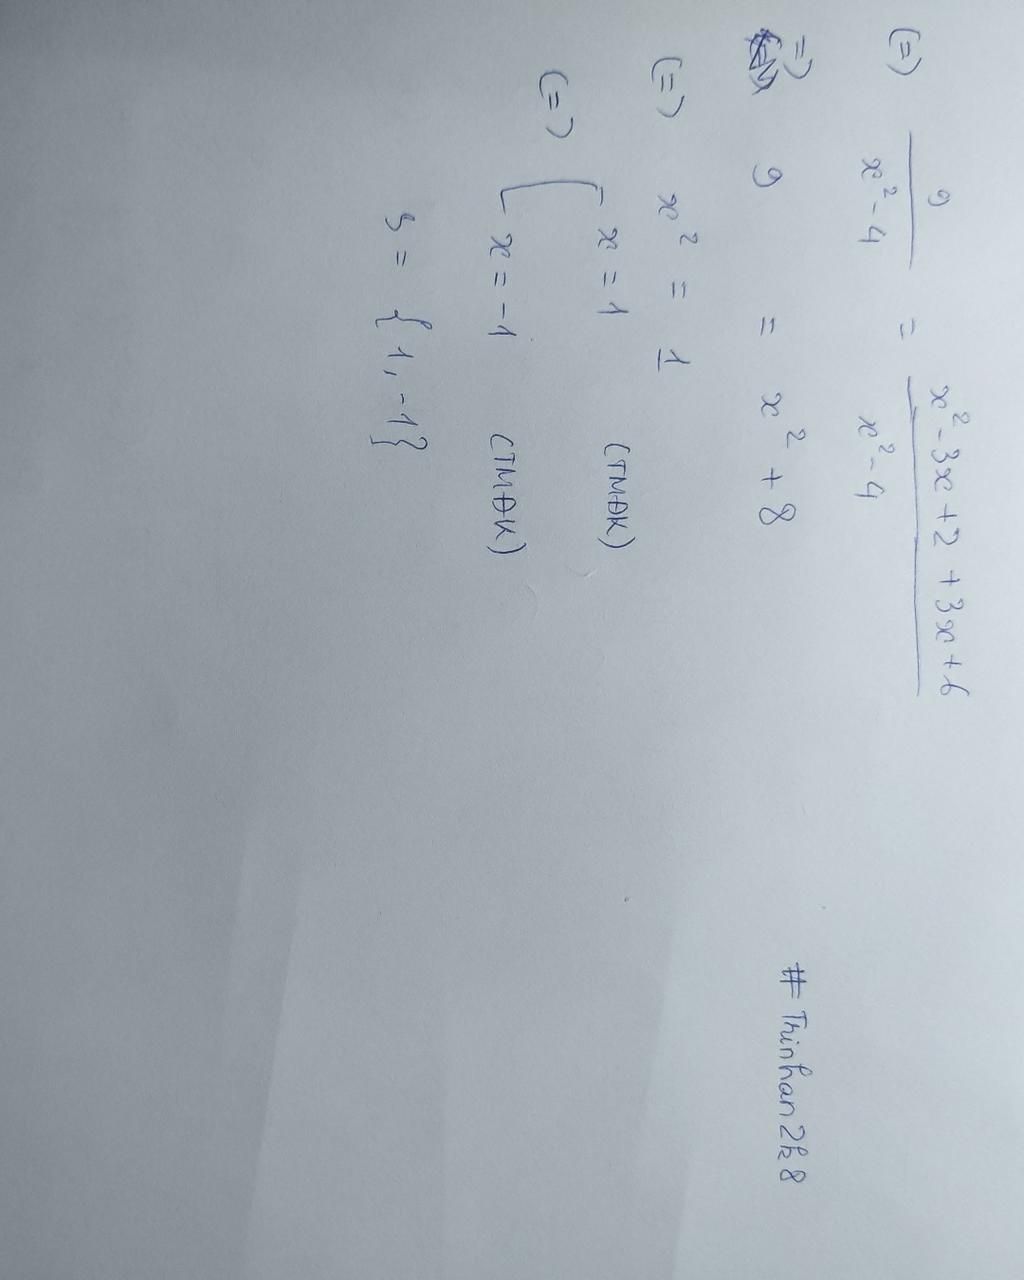 (=) 9/(x² - 4) = (x² - 3x + 2 + 3x + 6)/(x² - 4)
=) 9 = x² + 8
(=) x² = 1
(=) [ x = 1 (TMĐK)
x = -1 (TMĐK)
S = {1, -1}
# Thinhan2k8